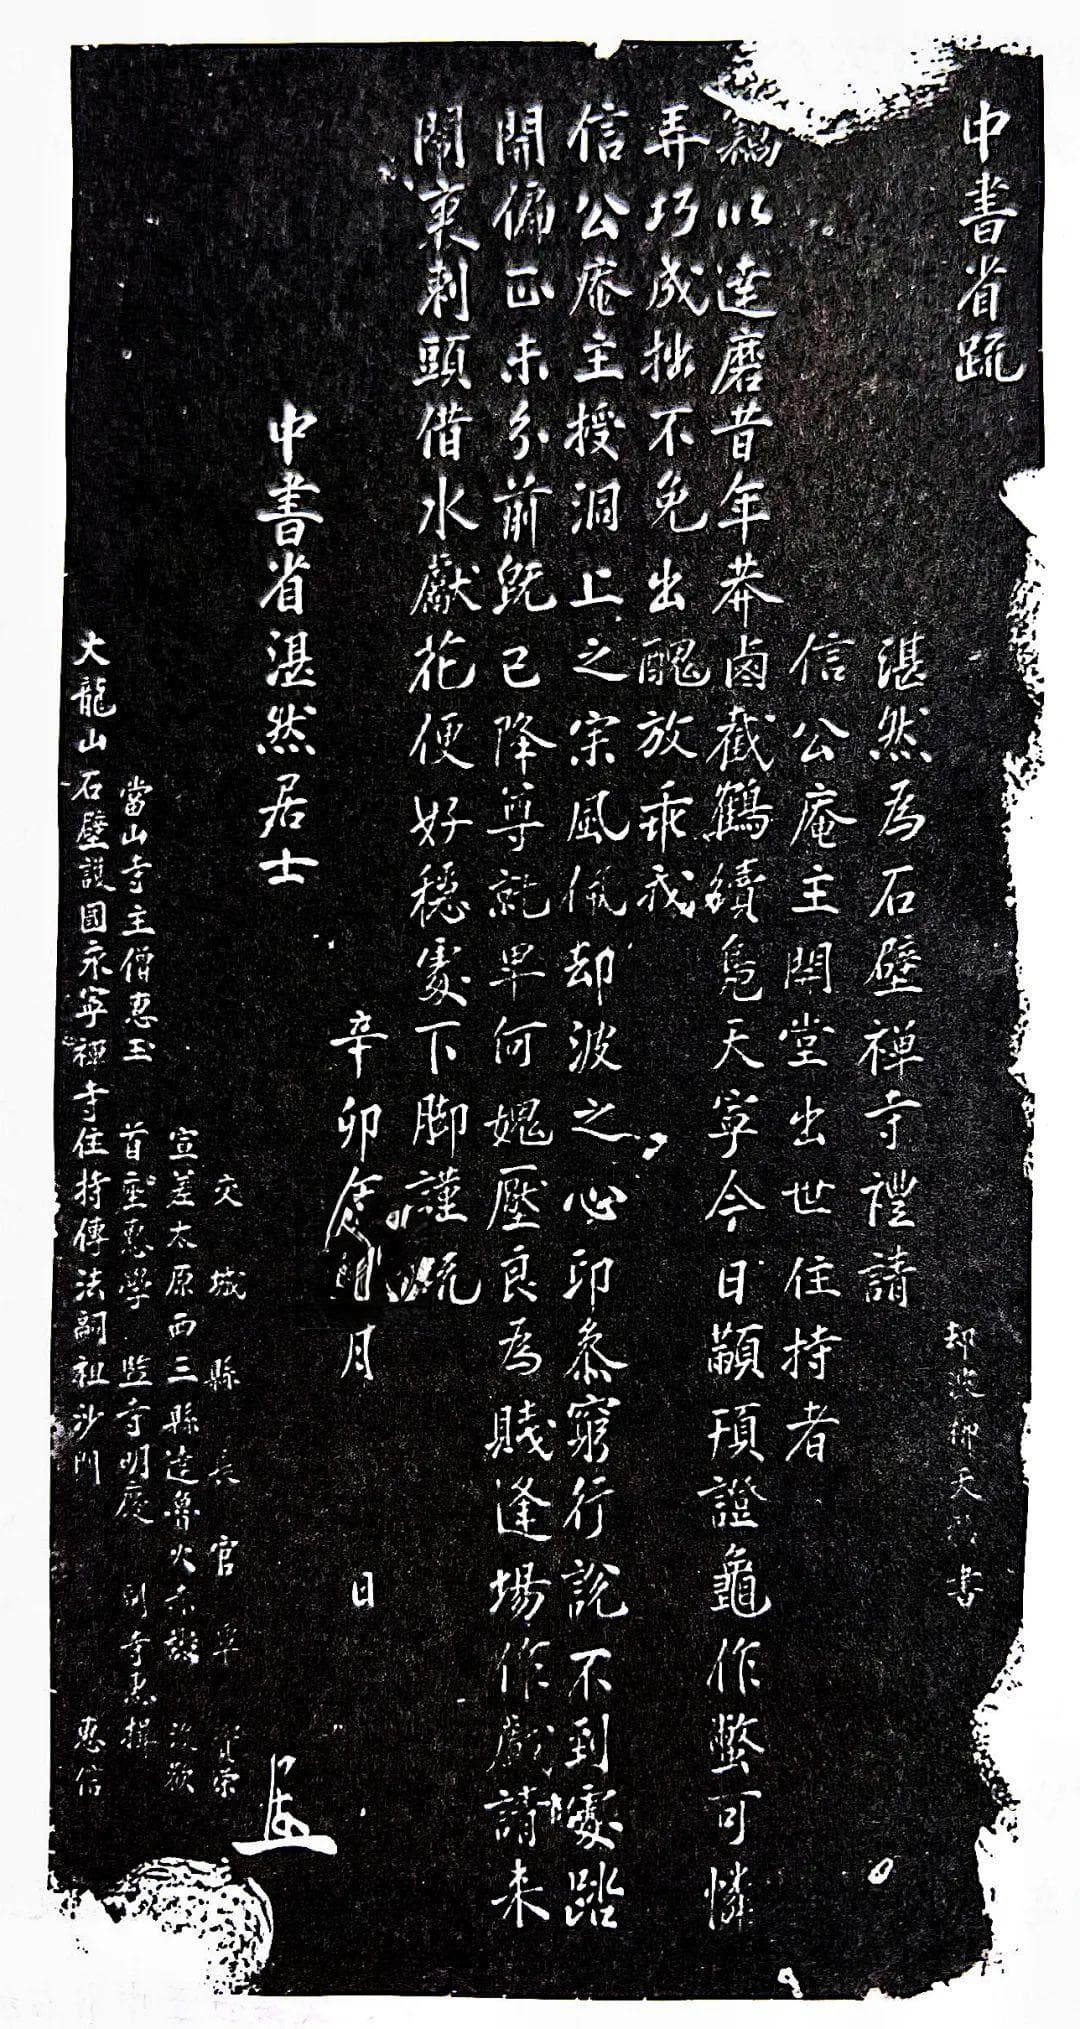 中書省疏
却波柳天書
湛然為石壁禅寺禮請
信公庵主開堂出世住持者
竊以達磨昔年莽鹵截鶴續鳧天寧今日顢頇證龜作鱉可憐
弄巧成拙不免出醜放乖我
信公庵主授洞上之宗風佩却波之心印叅窮行說不到處踏
開偏正未分前旣已降尊就卑何媿壓良為賤逢場作戲請来
閙裏剌頭借水獻花便好穩處下脚謹疏
辛卯月 日
中書省湛然居士
交城縣長官覃榮
宣差太原西三縣達魯火赤
當山寺主僧惠玉 首座惠學 監寺明慶 副寺惠揖
大龍山石壁護國永寧禪寺住持傳法嗣祖沙門 惠信